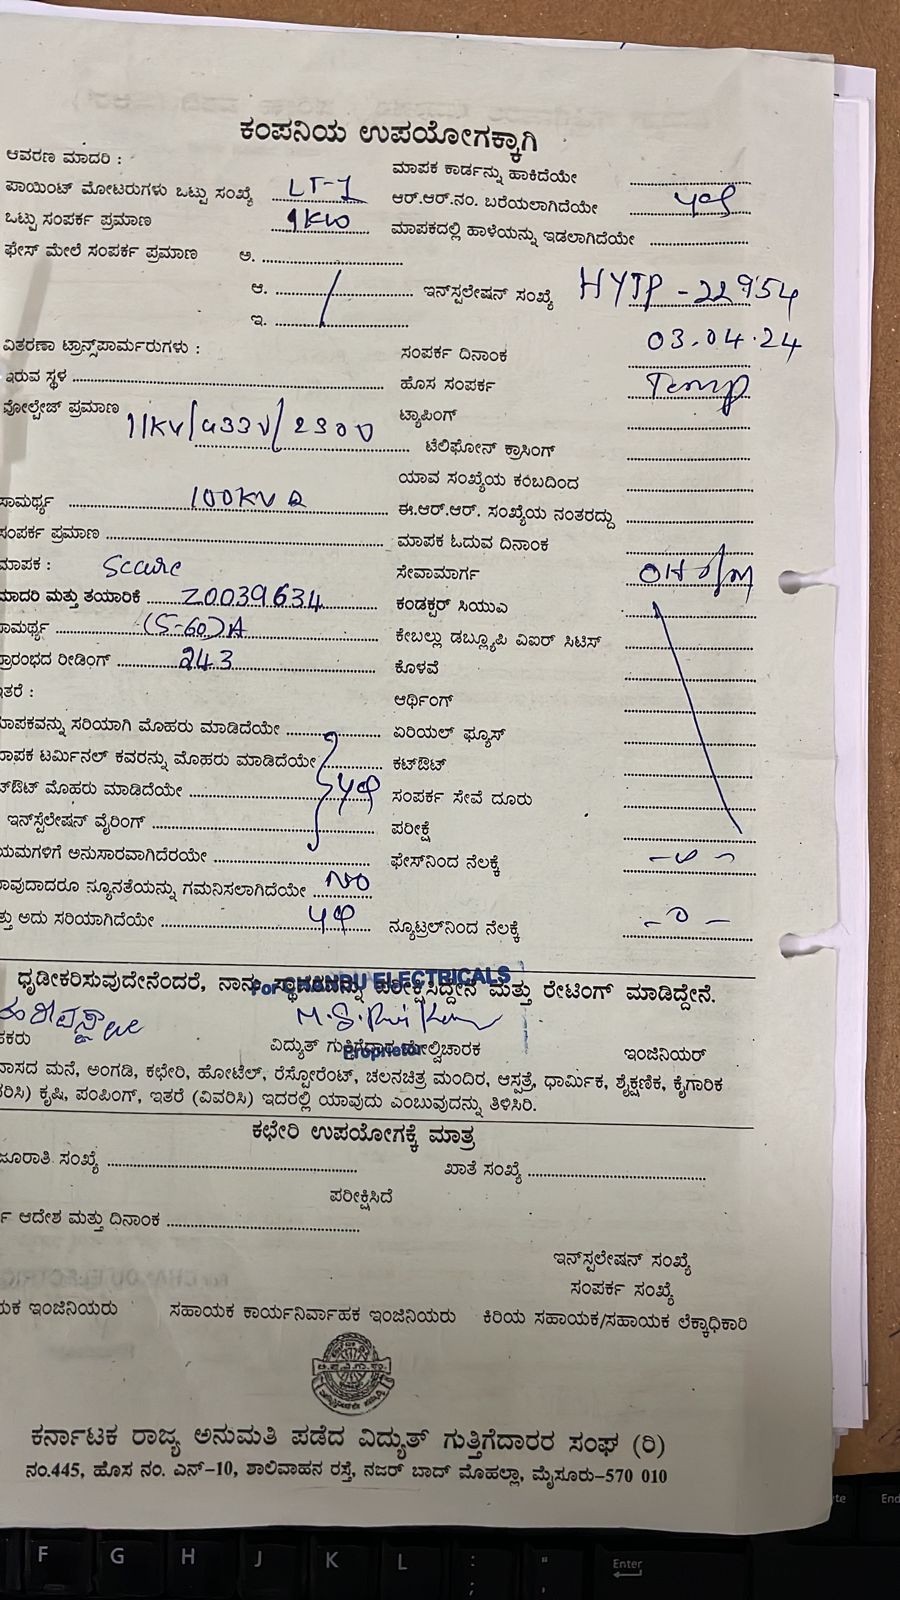 ಕಂಪನಿಯ ಉಪಯೋಗಕ್ಕಾಗಿ
ಆವರಣ ಮಾದರಿ :
ಮಾಪಕ ಕಾರ್ಡನ್ನು ಹಾಕಿದೆಯೇ
ಪಾಯಿಂಟ್ ಮೋಟರುಗಳು ಒಟ್ಟು ಸಂಖ್ಯೆ LT-1
ಆರ್.ಆರ್.ನಂ. ಬರೆಯಲಾಗಿದೆಯೇ yes
ಒಟ್ಟು ಸಂಪರ್ಕ ಪ್ರಮಾಣ 1KW
ಮಾಪಕದಲ್ಲಿ ಹಾಳೆಯನ್ನು ಇಡಲಾಗಿದೆಯೇ
ಫೇಸ್ ಮೇಲೆ ಸಂಪರ್ಕ ಪ್ರಮಾಣ ಅ.
ಆ.
ಇ.
ಇನ್‌ಸ್ಪಲೇಷನ್ ಸಂಖ್ಯೆ HYTP-22954
ವಿತರಣಾ ಟ್ರಾನ್ಸ್‌ಪಾರ್ಮರುಗಳು :
ಸಂಪರ್ಕ ದಿನಾಂಕ 03.04.24
ಇರುವ ಸ್ಥಳ
ಹೊಸ ಸಂಪರ್ಕ Temp
ವೋಲ್ಟೇಜ್ ಪ್ರಮಾಣ 11KV/433V/230V
ಟ್ಯಾಪಿಂಗ್
ಟೆಲಿಫೋನ್ ಕ್ರಾಸಿಂಗ್
ಯಾವ ಸಂಖ್ಯೆಯ ಕಂಬದಿಂದ
ಸಾಮರ್ಥ್ಯ 100KVA
ಈ.ಆರ್.ಆರ್. ಸಂಖ್ಯೆಯ ನಂತರದ್ದು
ಸಂಪರ್ಕ ಪ್ರಮಾಣ
ಮಾಪಕ ಓದುವ ದಿನಾಂಕ
ಮಾಪಕ : Secure
ಸೇವಾಮಾರ್ಗ
ಮಾದರಿ ಮತ್ತು ತಯಾರಿಕೆ Z0039634
ಕಂಡಕ್ಟರ್ ಸಿಯುವಿ
ಾಮರ್ಥ್ಯ (5-60)A
ಕೇಬಲ್ಲು ಡಬ್ಲ್ಯೂಪಿ ವಿಐರ್ ಸಿಟಿಸ್
ಪ್ರಾರಂಭದ ರೀಡಿಂಗ್ 243
ಕೊಳವೆ
ಇತರೆ :
ಆರ್ಥಿಂಗ್
ಮಾಪಕವನ್ನು ಸರಿಯಾಗಿ ಮೊಹರು ಮಾಡಿದೆಯೇ
ಏರಿಯಲ್ ಫ್ಯೂಸ್
ಮಾಪಕ ಟರ್ಮಿನಲ್ ಕವರನ್ನು ಮೊಹರು ಮಾಡಿದೆಯೇ
ಕಟ್‌ಔಟ್
ಟ್‌ಔಟ್ ಮೊಹರು ಮಾಡಿದೆಯೇ yes
ಸಂಪರ್ಕ ಸೇವೆ ದೂರು
ಇನ್‌ಸ್ಪೆಲೇಷನ್ ವೈರಿಂಗ್
ಪರೀಕ್ಷೆ
ಯಮಗಳಿಗೆ ಅನುಸಾರವಾಗಿದೆರಯೇ
ಫೇಸ್‌ನಿಂದ ನೆಲಕ್ಕೆ
ಾವುದಾದರೂ ನ್ಯೂನತೆಯನ್ನು ಗಮನಿಸಲಾಗಿದೆಯೇ No
ತ್ತು ಅದು ಸರಿಯಾಗಿದೆಯೇ yes
ನ್ಯೂಟ್ರಲ್‌ನಿಂದ ನೆಲಕ್ಕೆ -0-
ಧೃಡೀಕರಿಸುವುದೇನೆಂದರೆ, ನಾನು ಸ್ಥಾಪನವನ್ನು ಪರೀಕ್ಷಿಸಿದ್ದೇನೆ ಮತ್ತು ರೇಟಿಂಗ್ ಮಾಡಿದ್ದೇನೆ.
For CHANDRU ELECTRICALS
ಹಕರು ವಿದ್ಯುತ್ ಗುತ್ತಿಗೆದಾರ ಮೇಲ್ವಿಚಾರಕ ಇಂಜಿನಿಯರ್
Proprietor
ವಾಸದ ಮನೆ, ಅಂಗಡಿ, ಕಛೇರಿ, ಹೋಟೆಲ್, ರೆಸ್ಟೋರೆಂಟ್, ಚಲನಚಿತ್ರ ಮಂದಿರ, ಆಸ್ಪತ್ರೆ, ಧಾರ್ಮಿಕ, ಶೈಕ್ಷಣಿಕ, ಕೈಗಾರಿಕ
ವರಿಸಿ) ಕೃಷಿ, ಪಂಪಿಂಗ್, ಇತರೆ (ವಿವರಿಸಿ) ಇದರಲ್ಲಿ ಯಾವುದು ಎಂಬುವುದನ್ನು ತಿಳಿಸಿರಿ.
ಕಛೇರಿ ಉಪಯೋಗಕ್ಕೆ ಮಾತ್ರ
ಜೂರಾತಿ ಸಂಖ್ಯೆ ಖಾತೆ ಸಂಖ್ಯೆ
ಪರೀಕ್ಷಿಸಿದೆ
ಆದೇಶ ಮತ್ತು ದಿನಾಂಕ
ಇನ್‌ಸ್ಪಲೇಷನ್ ಸಂಖ್ಯೆ
ಸಂಪರ್ಕ ಸಂಖ್ಯೆ
ಯಕ ಇಂಜಿನಿಯರು ಸಹಾಯಕ ಕಾರ್ಯನಿರ್ವಾಹಕ ಇಂಜಿನಿಯರು ಕಿರಿಯ ಸಹಾಯಕ/ಸಹಾಯಕ ಲೆಕ್ಕಾಧಿಕಾರಿ
ಕರ್ನಾಟಕ ರಾಜ್ಯ ಅನುಮತಿ ಪಡೆದ ವಿದ್ಯುತ್ ಗುತ್ತಿಗೆದಾರರ ಸಂಘ (ರಿ)
ನಂ.445, ಹೊಸ ನಂ. ಎನ್-10, ಶಾಲಿವಾಹನ ರಸ್ತೆ, ನಜರ್ ಬಾದ್ ಮೊಹಲ್ಲಾ, ಮೈಸೂರು-570 010
End
F G H J K L : ; " ' Enter